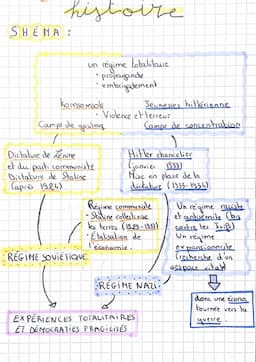 histoire
SHÉMA :
un régime totalitaire
· propagande
· embrigadement
Komsomols
Jeunesses hitlérienne
· Violence et terreur
Camps de goulag
Camps de concentration
Dictature de Lénine
et du parti communiste
Dictature de Staline
(après 1924)
Hitler chancelier
(janvier 1933)
Mise en place de la
dictature (1933-1934)
Régime communiste
- Staline collectivise
les terres (1929-1931)
· Étatisation de
l'économie.
Un régime raciste
et antisémite (lois
contre les Juifs)
Un régime
expansionniste
(recherche d'un
espace vital)
RÉGIME SOVIÉTIQUE
RÉGIME NAZI
donc une écono
tournée vers la
guerre.
EXPÉRIENCES TOTALITAIRES
ET DÉMOCRATIES FRAGILISÉS